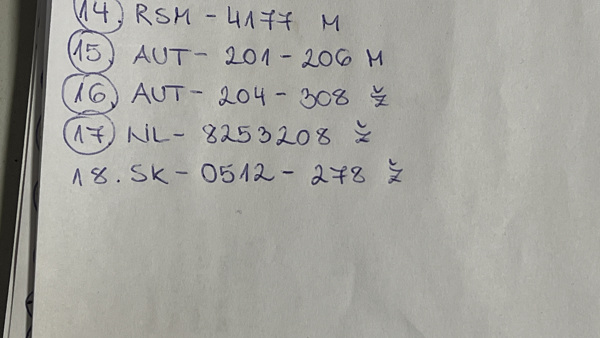 14. RSM - 4177 M
15. AUT - 201 - 206 M
16. AUT - 204 - 308 Ž
17. NL - 8253208 Ž
18. SK - 0512 - 278 Ž